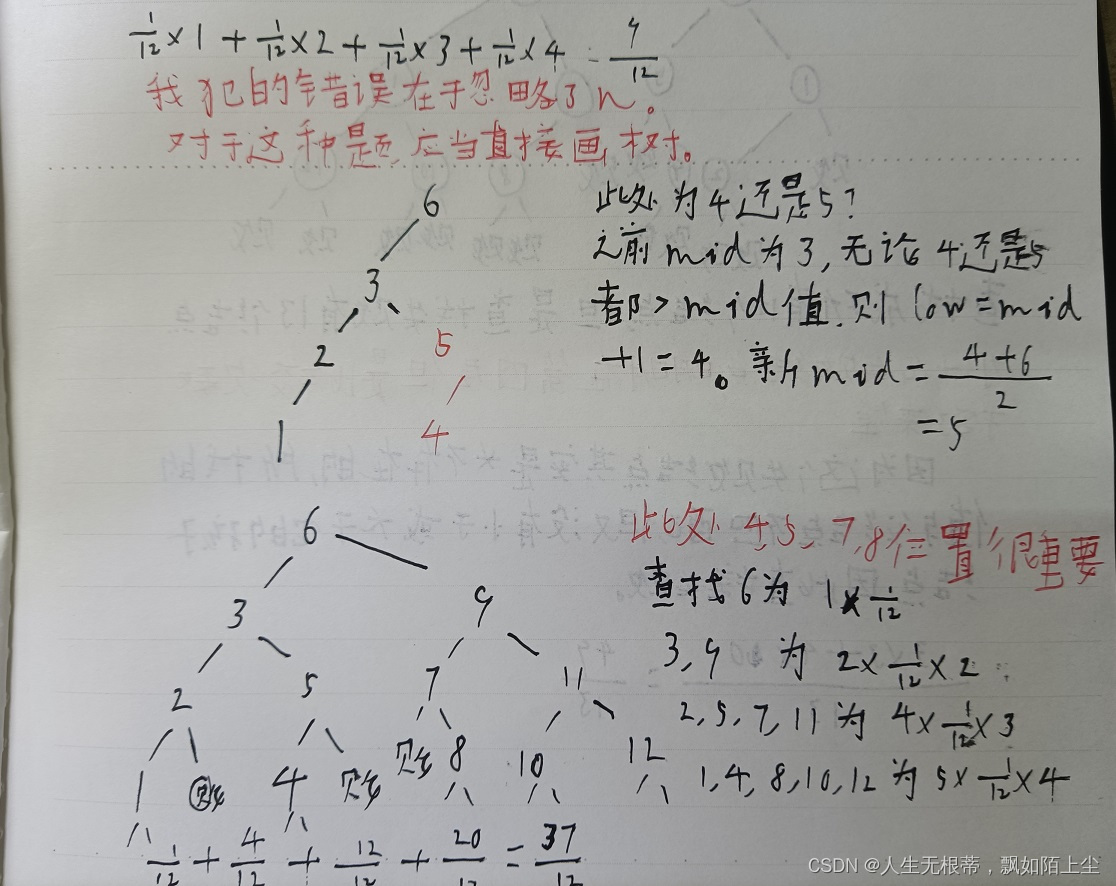 1/12×1 + 1/12×2 + 1/12×3 + 1/12×4 = 9/12
我犯的错误在于忽略了n。
对于这种题应当直接画树。
6
3
2 5
1 4
此处为4还是5?
之前mid为3,无论4还是5
都>mid值.则low=mid
+1=4。新mid=(4+6)/2
=5
此处4,5,7,8位置很重要
查找6为 1×1/12
3,9 为 2×1/12×2
2,5,7,11为 4×1/12×3
1,4,8,10,12为5×1/12×4
6
3 9
2 5 7 11
1 败 4 败 败 8 10 12
1/12 + 4/12 + 12/12 + 20/12 = 37/12
CSDN @人生无根蒂，飘如陌上尘